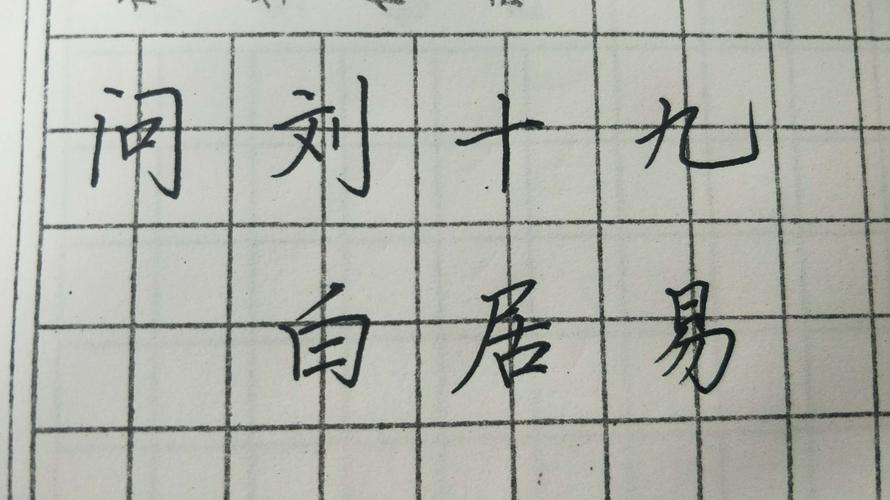 问刘十九
白居易